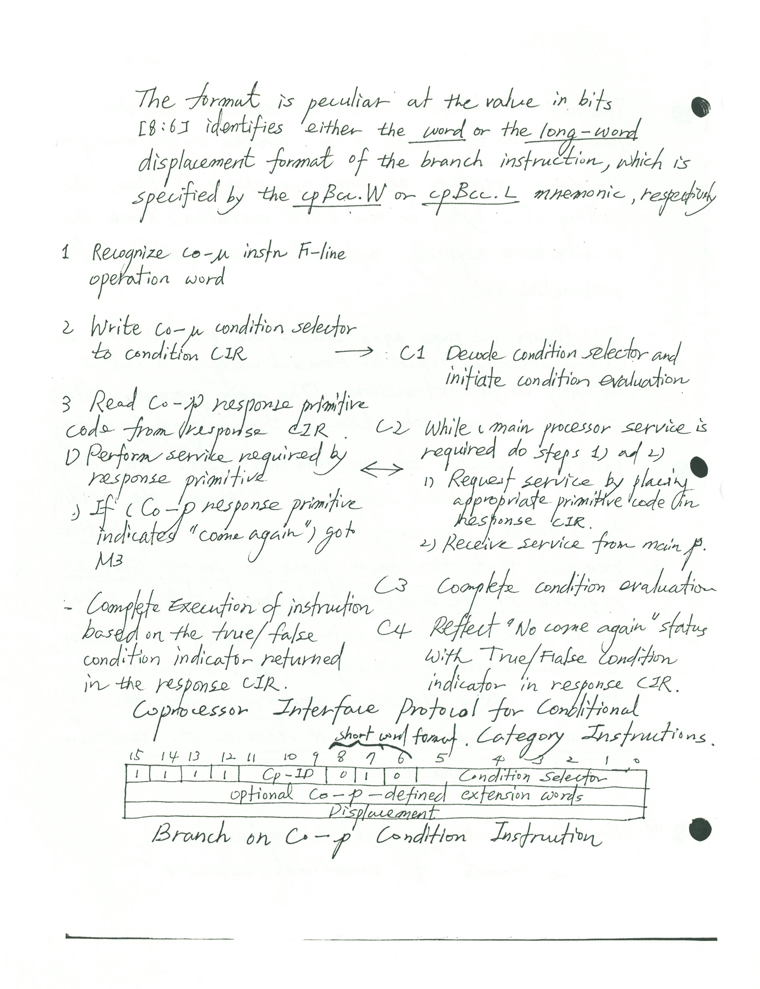 The format is peculiar at the value in bits
[8:6] identifies either the word or the long-word
displacement format of the branch instruction, which is
specified by the cpBcc.W or cpBcc.L mnemonic, respectively
1 Recognize co-μ instn F-line
operation word
2 Write Co-μ condition selector
to condition CIR →
C1 Decode condition selector and
initiate condition evaluation
3 Read Co-p response primitive
code from response CIR.
1) Perform service required by
response primitive ↔
) If (Co-p response primitive
indicates "come again") goto
M3
C2 While (main processor service is
required do steps 1) ad 2)
1) Request service by placing
appropriate primitive code in
response CIR.
2) Receive service from main p.
C3 Complete condition evaluation
- Complete Execution of instruction
based on the true/false
condition indicator returned
in the response CIR.
C4 Reflect "No come again" status
with True/False Condition
indicator in response CIR.
Coprocessor Interface Protocol for Conditional
short word format. Category Instructions.
15 14 13 12 11 10 9 8 7 6 5 4 3 2 1 0
1 1 1 1 Cp-ID 0 1 0 Condition Selector
optional Co-p-defined extension words
Displacement
Branch on Co-p Condition Instruction